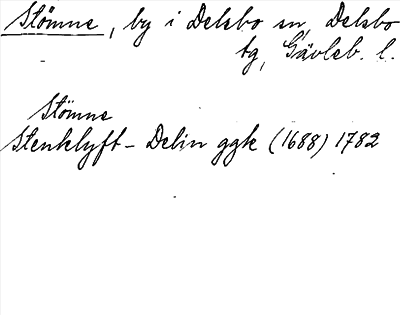 Stömne, by i Delsbo sn, Delsbo
tg, Gävleb. l.
Stömne
Stenklyft - Delin ggk (1688) 1782